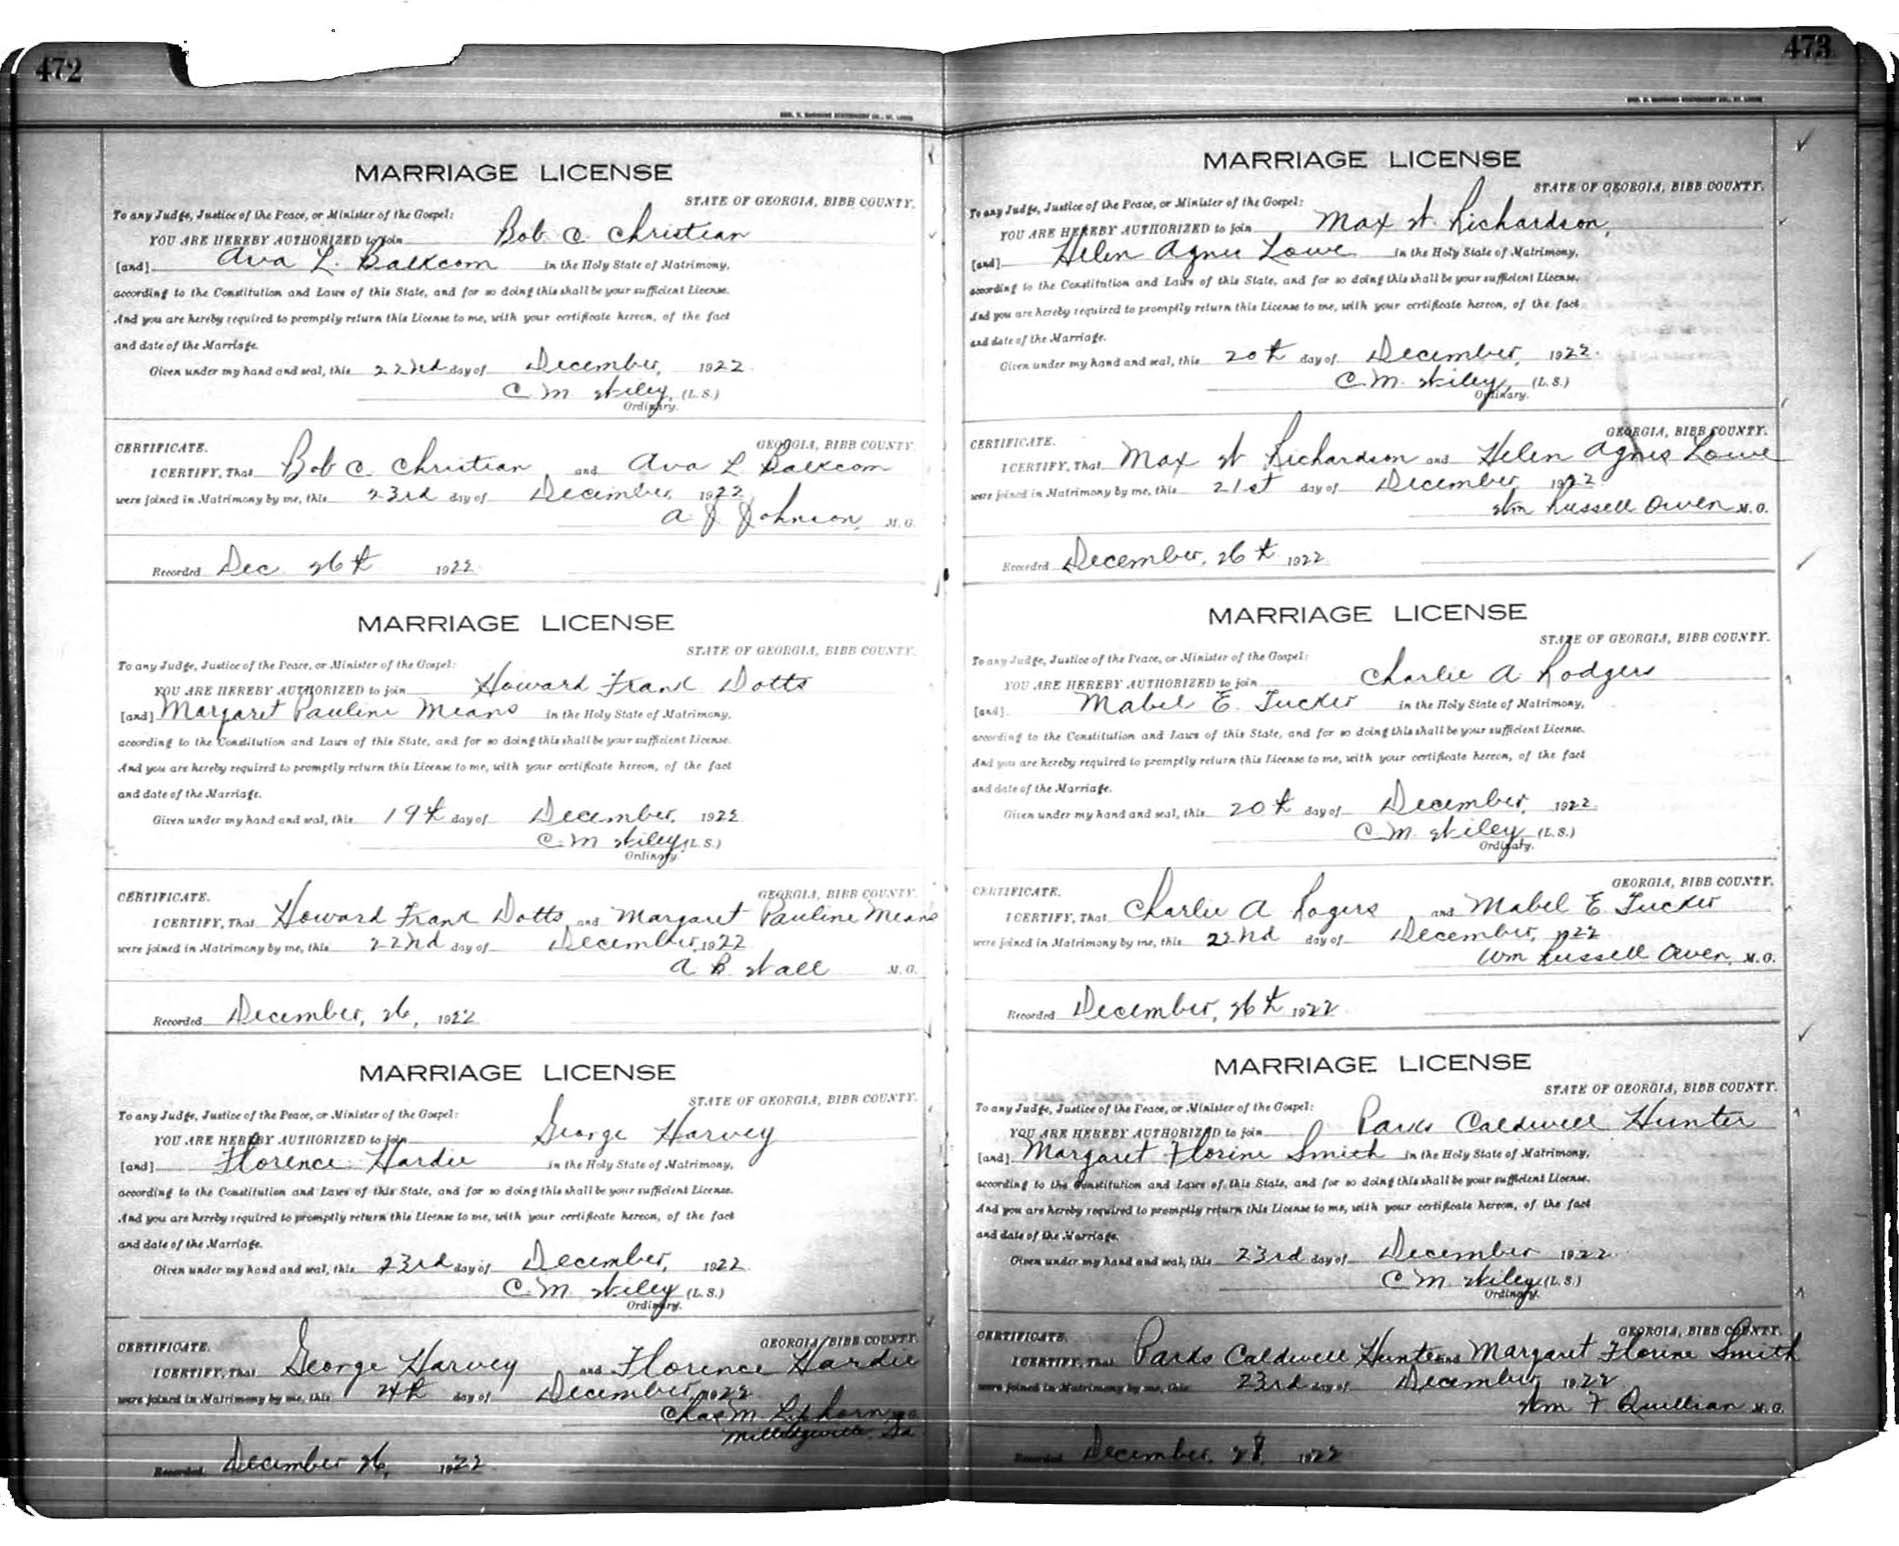 472
MARRIAGE LICENSE
STATE OF GEORGIA, BIBB COUNTY.
To any Judge, Justice of the Peace, or Minister of the Gospel:
YOU ARE HEREBY AUTHORIZED to join Bob C. Christian
[and] Ava L. Balkcom in the Holy State of Matrimony,
according to the Constitution and Laws of this State, and for so doing this shall be your sufficient License.
And you are hereby required to promptly return this License to me, with your certificate hereon, of the fact
and date of the Marriage.
Given under my hand and seal, this 22nd day of December, 1922.
C M Wiley, (L.S.)
Ordinary.
CERTIFICATE. GEORGIA, BIBB COUNTY.
I CERTIFY, That Bob C. Christian and Ava L Balkcom
were joined in Matrimony by me, this 23rd day of December, 1922
A J Johnson, M.G.
Recorded Dec 26th 1922
MARRIAGE LICENSE
STATE OF GEORGIA, BIBB COUNTY.
To any Judge, Justice of the Peace, or Minister of the Gospel:
YOU ARE HEREBY AUTHORIZED to join Howard Frank Dotts
[and] Margaret Pauline Means in the Holy State of Matrimony,
according to the Constitution and Laws of this State, and for so doing this shall be your sufficient License.
And you are hereby required to promptly return this License to me, with your certificate hereon, of the fact
and date of the Marriage.
Given under my hand and seal, this 19th day of December, 1922
C. M Wiley (L.S.)
Ordinary.
CERTIFICATE. GEORGIA, BIBB COUNTY.
I CERTIFY, That Howard Frank Dotts and Margaret Pauline Means
were joined in Matrimony by me, this 22nd day of December, 1922
A B Wall M.G.
Recorded December, 26, 1922
MARRIAGE LICENSE
STATE OF GEORGIA, BIBB COUNTY.
To any Judge, Justice of the Peace, or Minister of the Gospel:
YOU ARE HEREBY AUTHORIZED to join George Harvey
[and] Florence Hardie in the Holy State of Matrimony,
according to the Constitution and Laws of this State, and for so doing this shall be your sufficient License.
And you are hereby required to promptly return this License to me, with your certificate hereon, of the fact
and date of the Marriage.
Given under my hand and seal, this 23rd day of December, 1922.
C. M Wiley (L.S.)
Ordinary.
CERTIFICATE. GEORGIA, BIBB COUNTY.
I CERTIFY, That George Harvey and Florence Hardie
were joined in Matrimony by me, this 24th day of December, 1922
Chas M. M.G.
Milledgeville, Ga
Recorded December 26, 1922
473
MARRIAGE LICENSE
STATE OF GEORGIA, BIBB COUNTY.
To any Judge, Justice of the Peace, or Minister of the Gospel:
YOU ARE HEREBY AUTHORIZED to join Max W. Richardson,
[and] Helen Agnes Lowe in the Holy State of Matrimony,
according to the Constitution and Laws of this State, and for so doing this shall be your sufficient License.
And you are hereby required to promptly return this License to me, with your certificate hereon, of the fact
and date of the Marriage.
Given under my hand and seal, this 20th day of December, 1922.
C. M. Wiley, (L.S.)
Ordinary.
CERTIFICATE. GEORGIA, BIBB COUNTY.
I CERTIFY, That Max W Richardson and Helen Agnes Lowe
were joined in Matrimony by me, this 21st day of December, 1922
Wm Russell Owen M.G.
Recorded December, 26th 1922
MARRIAGE LICENSE
STATE OF GEORGIA, BIBB COUNTY.
To any Judge, Justice of the Peace, or Minister of the Gospel:
YOU ARE HEREBY AUTHORIZED to join Charlie A Rodgers
[and] Mabel E. Tucker in the Holy State of Matrimony,
according to the Constitution and Laws of this State, and for so doing this shall be your sufficient License.
And you are hereby required to promptly return this License to me, with your certificate hereon, of the fact
and date of the Marriage.
Given under my hand and seal, this 20th day of December, 1922.
C. M. Wiley (L.S.)
Ordinary.
CERTIFICATE. GEORGIA, BIBB COUNTY.
I CERTIFY, That Charlie A Rogers and Mabel E Tucker
were joined in Matrimony by me, this 22nd day of December, 1922
Wm Russell Owen, M.G.
Recorded December, 26th 1922
MARRIAGE LICENSE
STATE OF GEORGIA, BIBB COUNTY.
To any Judge, Justice of the Peace, or Minister of the Gospel:
YOU ARE HEREBY AUTHORIZED to join Parks Caldwell Hunter
[and] Margaret Florine Smith in the Holy State of Matrimony,
according to the Constitution and Laws of this State, and for so doing this shall be your sufficient License.
And you are hereby required to promptly return this License to me, with your certificate hereon, of the fact
and date of the Marriage.
Given under my hand and seal, this 23rd day of December 1922.
C M Wiley (L.S.)
Ordinary.
CERTIFICATE. GEORGIA, BIBB COUNTY.
I CERTIFY, That Parks Caldwell Hunter and Margaret Florine Smith
were joined in Matrimony by me, this 23rd day of December, 1922
Wm F Quillian M.G.
Recorded December, 28, 1922